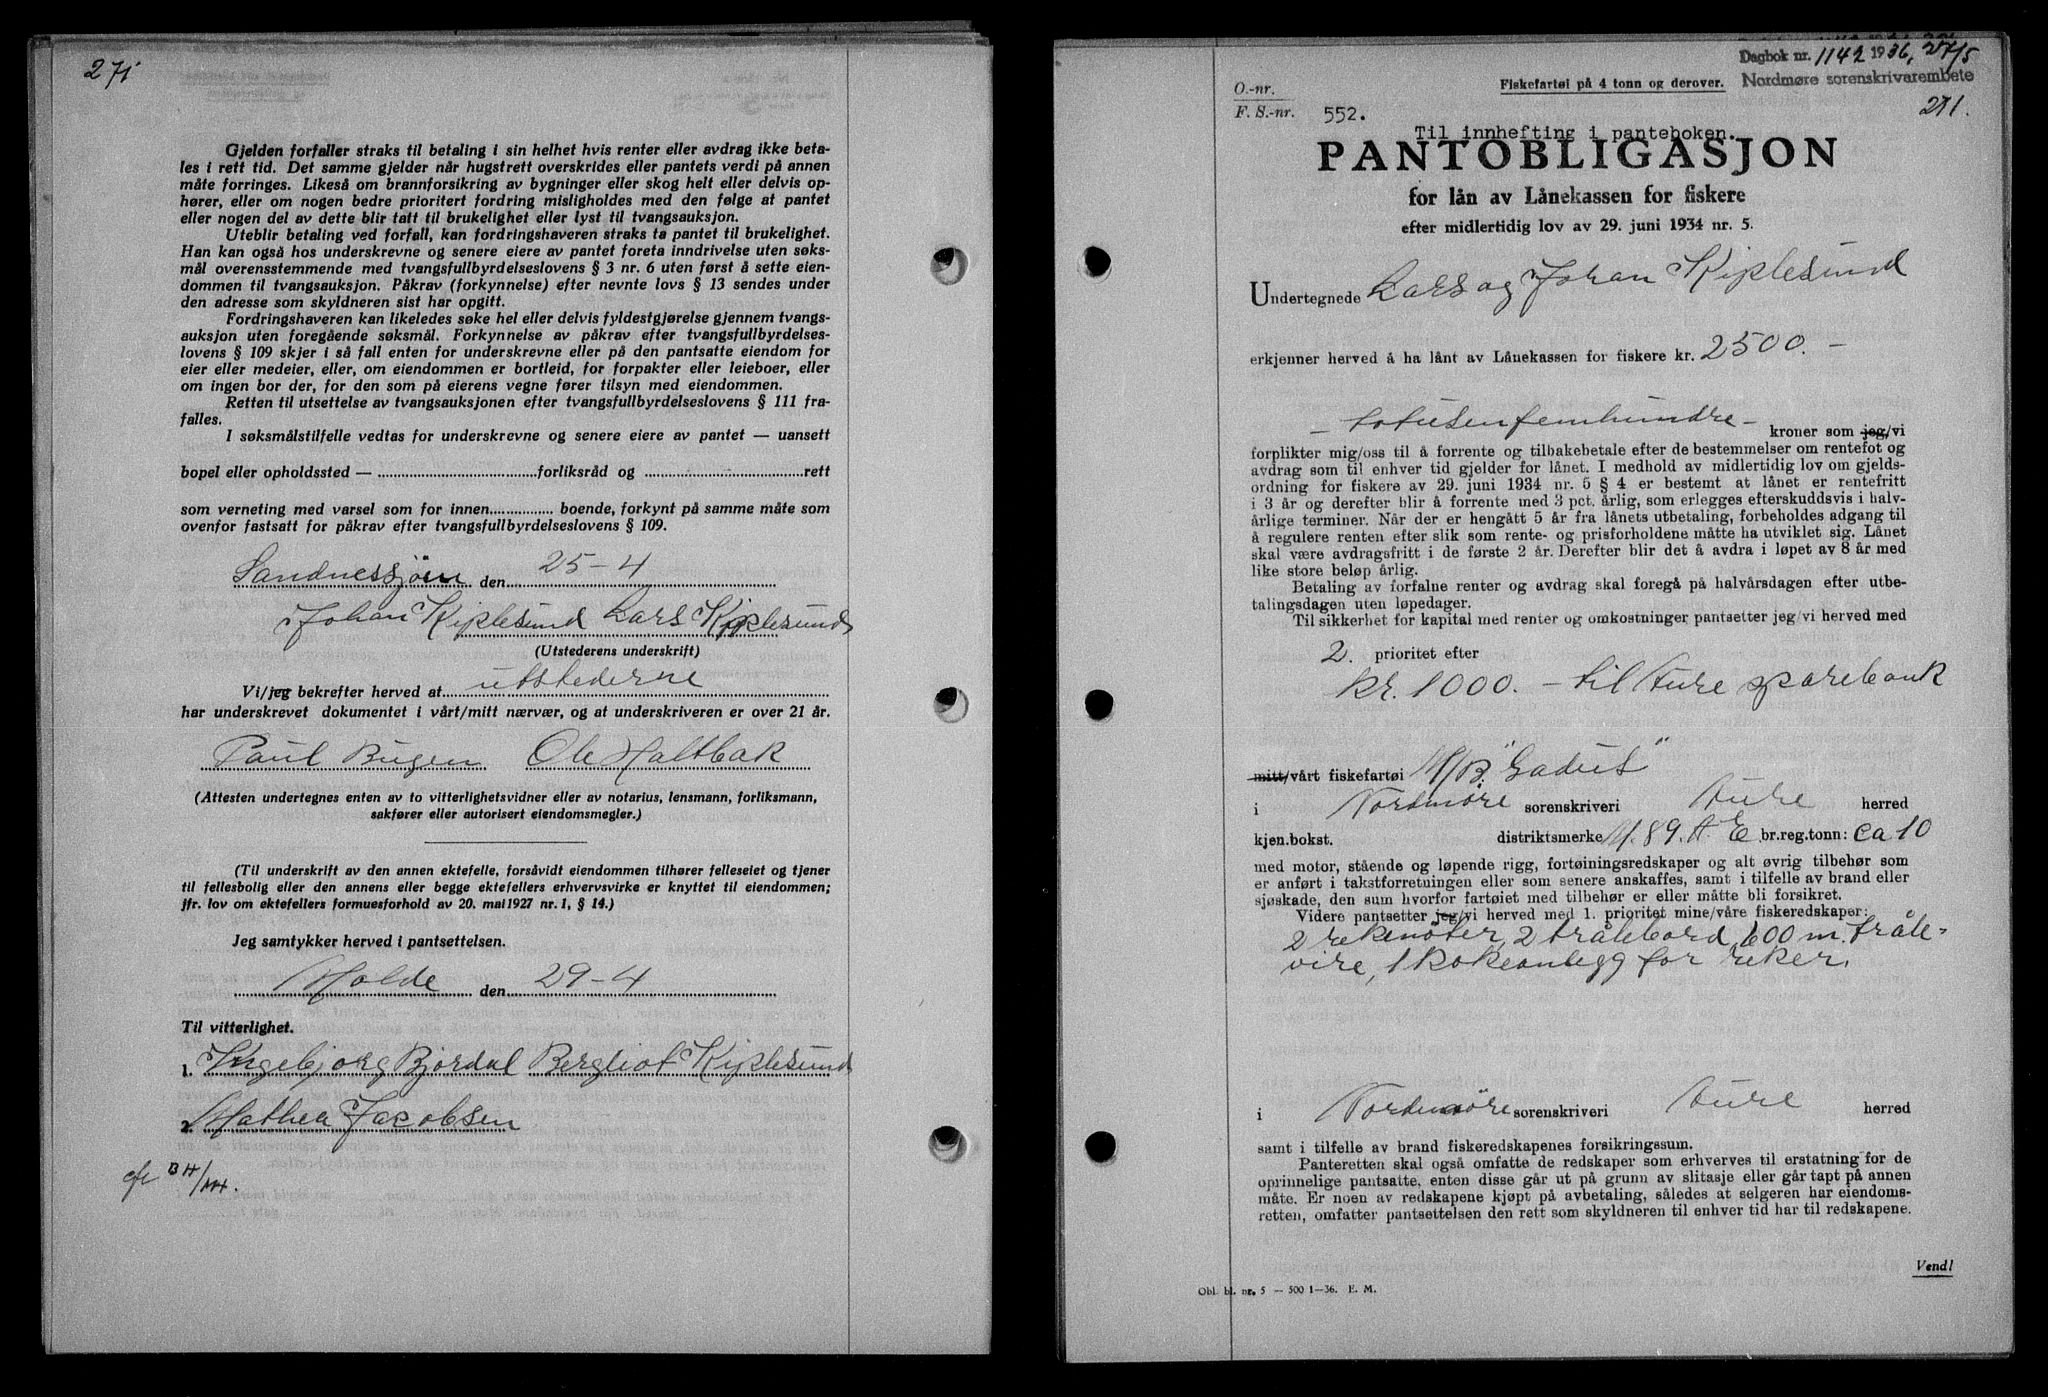 271
Gjelden forfaller straks til betaling i sin helhet hvis renter eller avdrag ikke beta-
les i rett tid. Det samme gjelder når hugstrett overskrides eller pantets verdi på annen
måte forringes. Likeså om brannforsikring av bygninger eller skog helt eller delvis op-
hører, eller om nogen bedre prioritert fordring misligholdes med den følge at pantet
eller nogen del av dette blir tatt til brukelighet eller lyst til tvangsauksjon.
Uteblir betaling ved forfall, kan fordringshaveren straks ta pantet til brukelighet.
Han kan også hos underskrevne og senere eiere av pantet foreta inndrivelse uten søks-
mål overensstemmende med tvangsfullbyrdelseslovens § 3 nr. 6 uten først å sette eien-
dommen til tvangsauksjon. Påkrav (forkynnelse) efter nevnte lovs § 13 sendes under
den adresse som skyldneren sist har opgitt.
Fordringshaveren kan likeledes søke hel eller delvis fyldestgjørelse gjennem tvangs-
auksjon uten foregående søksmål. Forkynnelse av påkrav efter tvangsfullbyrdelses-
lovens § 109 skjer i så fall enten for underskrevne eller på den pantsatte eiendom for
eier eller medeier, eller, om eiendommen er bortleid, for forpakter eller leieboer, eller
om ingen bor der, for den som på eierens vegne fører tilsyn med eiendommen.
Retten til utsettelse av tvangsauksjonen efter tvangsfullbyrdelseslovens § 111 fra-
falles.
I søksmålstilfelle vedtas for underskrevne og senere eiere av pantet — uansett
bopel eller opholdssted — forliksråd og rett
som verneting med varsel som for innen boende, forkynt på samme måte som
ovenfor fastsatt for påkrav efter tvangsfullbyrdelseslovens § 109.
Sandnessjøen den 25-4
Johan Kiplesund Lars Kiplesund
(Utstederens underskrift)
Vi/jeg bekrefter herved at utstederne
har underskrevet dokumentet i vårt/mitt nærvær, og at underskriveren er over 21 år.
Paul Bugen Ole Haltbak
(Attesten undertegnes enten av to vitterlighetsvidner eller av notarius, lensmann, forliksmann,
sakfører eller autorisert eiendomsmegler.)
(Til underskrift av den annen ektefelle, forsåvidt eiendommen tilhører felleseiet og tjener
til fellesbolig eller den annens eller begge ektefellers erhvervsvirke er knyttet til eiendommen;
jfr. lov om ektefellers formuesforhold av 20. mai 1927 nr. 1, § 14.)
Jeg samtykker herved i pantsettelsen.
Molde den 29-4
Til vitterlighet.
1. Ingebjorg Bjørdal Bergliot Kiplesund
2. Mathea Jacobsen
Dagbok nr. 1142 1936, 27/5
Nordmøre sorenskrivarembete
271.
Fiskefartøi på 4 tonn og derover.
O.-nr.
F. S.-nr. 552.
Til innhefting i panteboken.
PANTOBLIGASJON
for lån av Lånekassen for fiskere
efter midlertidig lov av 29. juni 1934 nr. 5.
Undertegnede Lars og Johan Kiplesund
erkjenner herved å ha lånt av Lånekassen for fiskere kr. 2500.—
— totusenfemhundre — kroner som jeg/vi
forplikter mig/oss til å forrente og tilbakebetale efter de bestemmelser om rentefot og
avdrag som til enhver tid gjelder for lånet. I medhold av midlertidig lov om gjelds-
ordning for fiskere av 29. juni 1934 nr. 5 § 4 er bestemt at lånet er rentefritt
i 3 år og derefter blir å forrente med 3 pct. årlig, som erlegges efterskuddsvis i halv-
årlige terminer. Når der er hengått 5 år fra lånets utbetaling, forbeholdes adgang til
å regulere renten efter slik som rente- og prisforholdene måtte ha utviklet sig. Lånet
skal være avdragsfritt i de første 2 år. Derefter blir det å avdra i løpet av 8 år med
like store beløp årlig.
Betaling av forfalne renter og avdrag skal foregå på halvårsdagen efter utbe-
talingsdagen uten løpedager.
Til sikkerhet for kapital med renter og omkostninger pantsetter jeg/vi herved med
2. prioritet efter
kr. 1000. — til Aure sparebank
mitt/vårt fiskefartøi M/B. "Gadus"
i Nordmøre sorenskriveri Aure herred
kjen.bokst. distriktsmerke M. 89. A. E br.reg.tonn: ca 10
med motor, stående og løpende rigg, fortøiningsredskaper og alt øvrig tilbehør som
er anført i takstforretningen eller som senere anskaffes, samt i tilfelle av brand eller
sjøskade, den sum hvorfor fartøiet med tilbehør er eller måtte bli forsikret.
Videre pantsetter jeg/vi herved med 1. prioritet mine/våre fiskeredskaper:
2 rekenøter, 2 trålebord, 600 m. tråle-
vire, 1 kokeanlegg for reker.
i Nordmøre sorenskriveri Aure herred
samt i tilfelle av brand fiskeredskapenes forsikringssum.
Panteretten skal også omfatte de redskaper som erhverves til erstatning for de
oprinnelige pantsatte, enten disse går ut på grunn av slitasje eller går tapt på annen
måte. Er noen av redskapene kjøpt på avbetaling, således at selgeren har eiendoms-
retten, omfatter pantsettelsen den rett som skyldneren til enhver tid har til redskapene.
Vend!
Obl. bl. nr. 5 — 500 1—36. E. M.